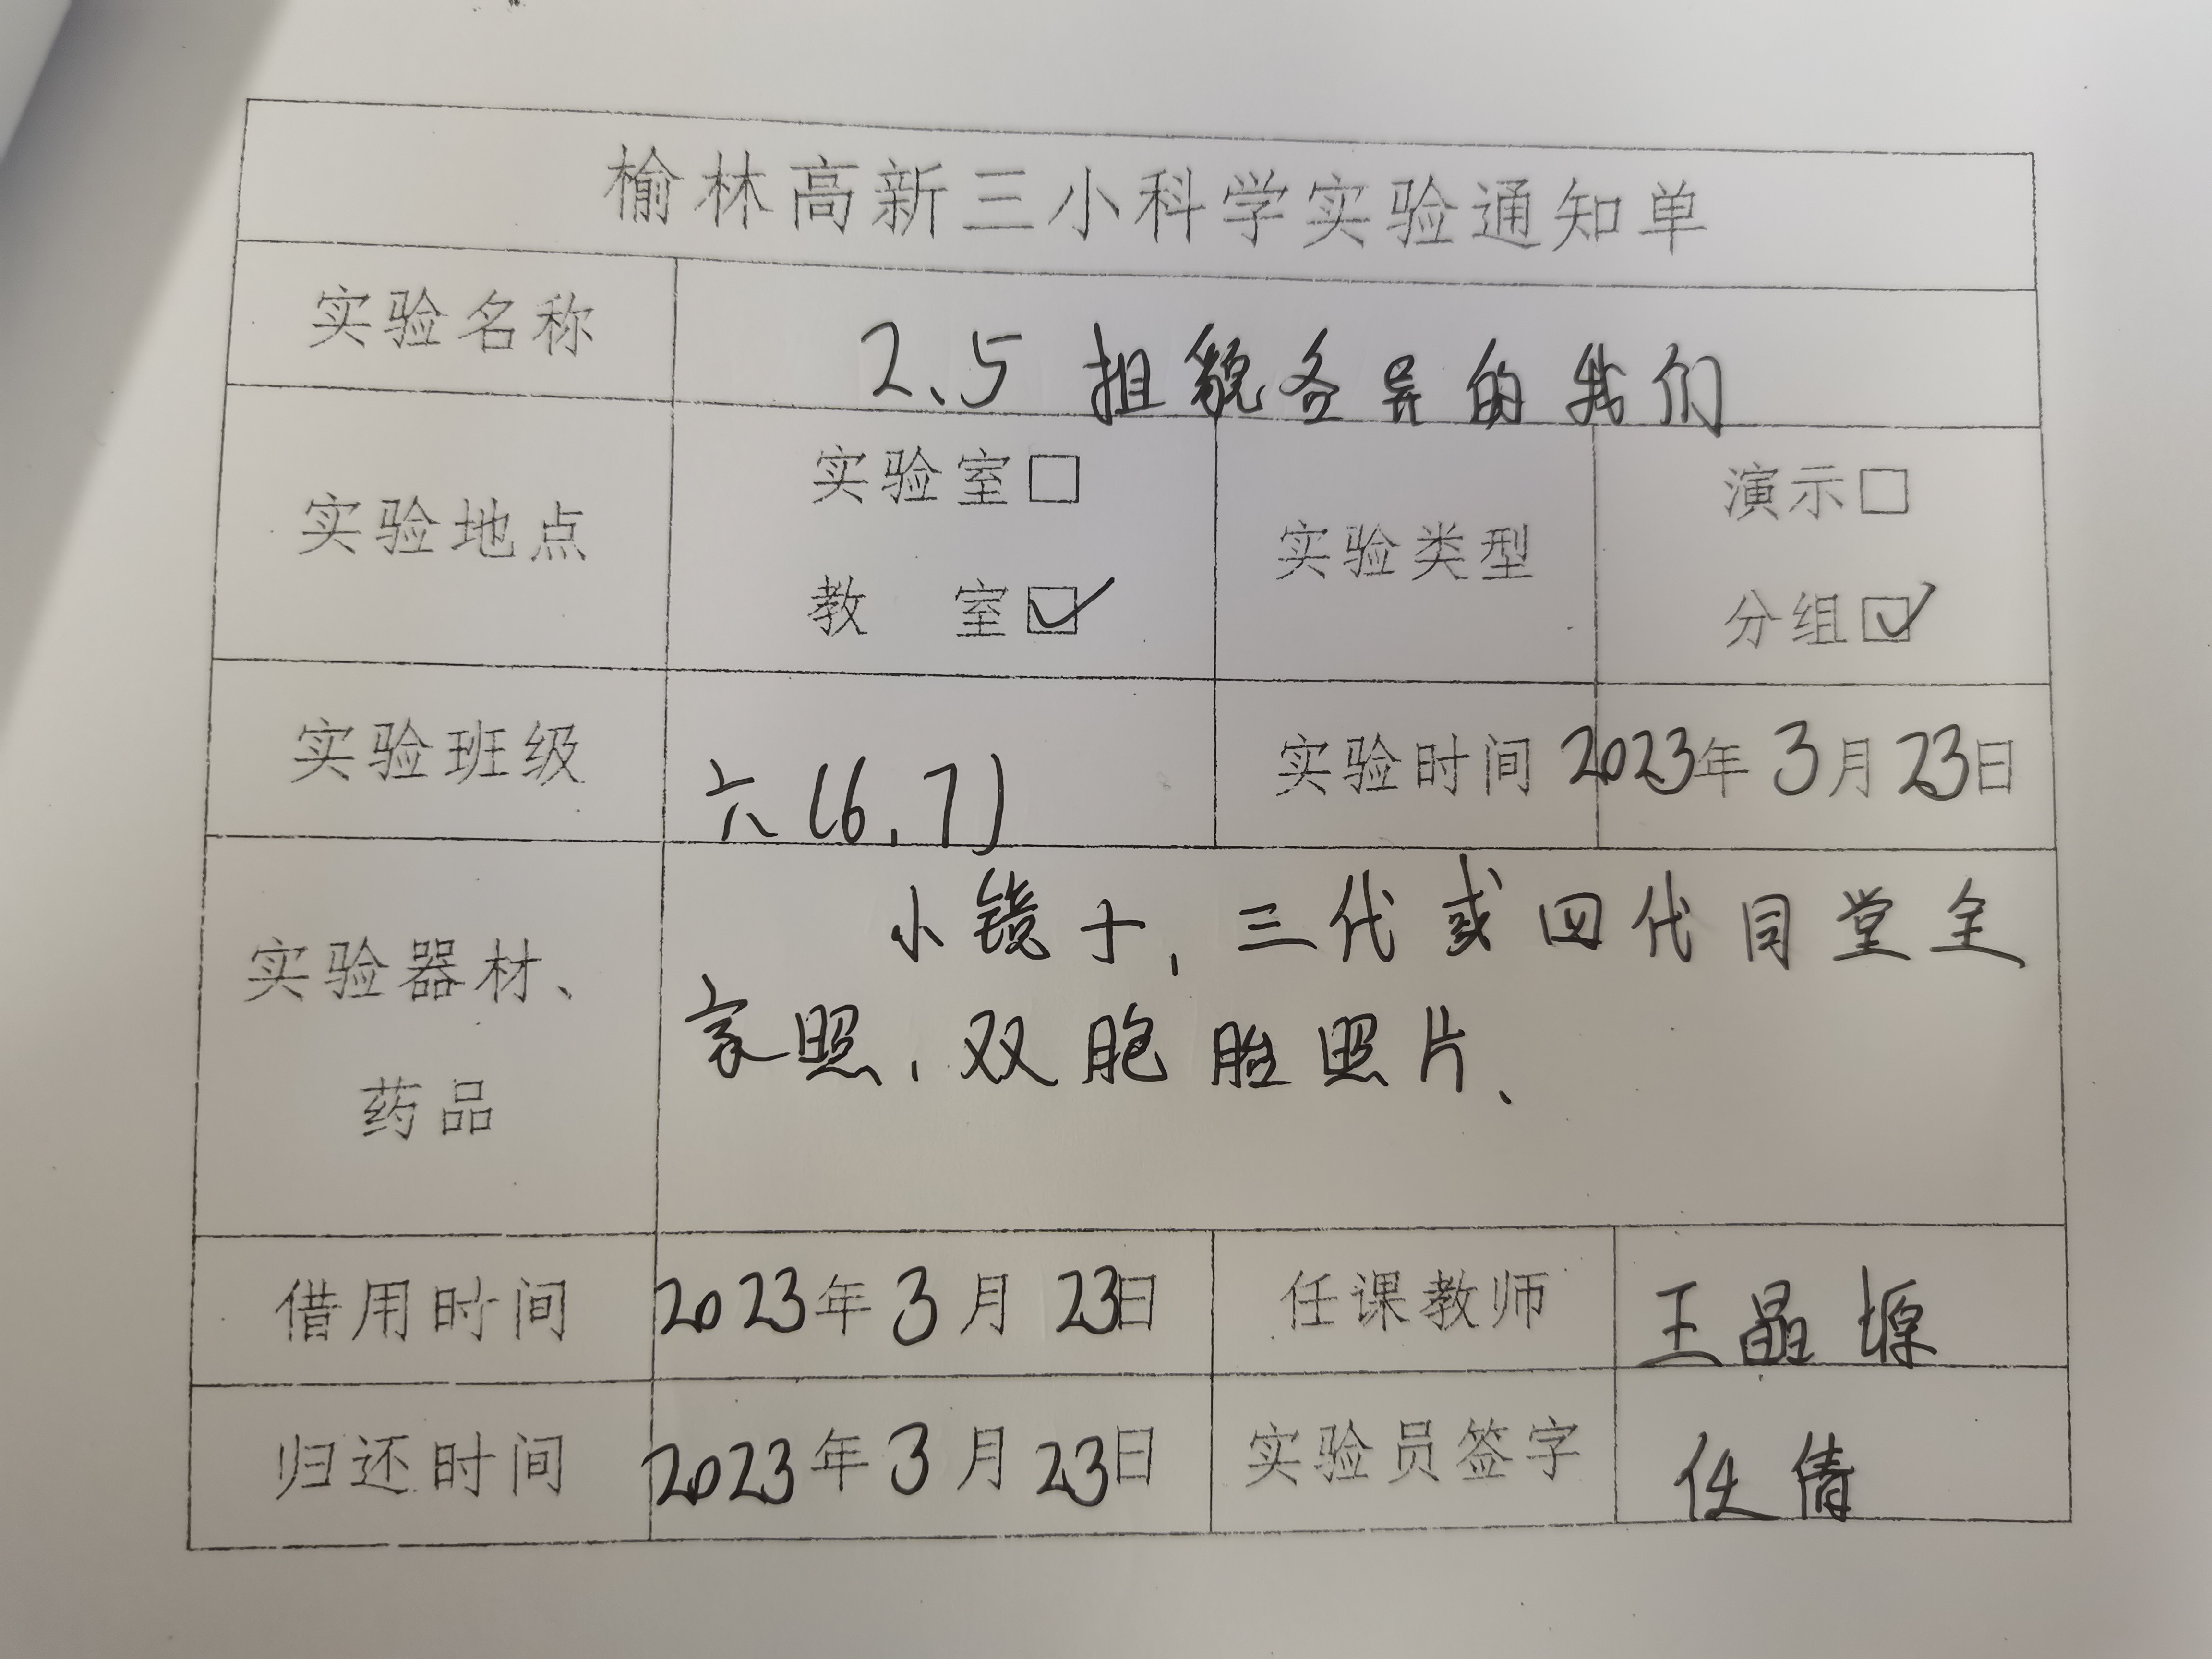 榆林高新三小科学实验通知单
实验名称 2、5 相貌各异的我们
实验地点 实验室□ 教 室☑ 实验类型 演示□ 分组☑
实验班级 六(6、7) 实验时间 2023年3月23日
实验器材、药品
小镜子、三代或四代同堂全
家照、双胞胎照片、
借用时间 2023年3月23日 任课教师 王晶塬
归还时间 2023年3月23日 实验员签字 任倩